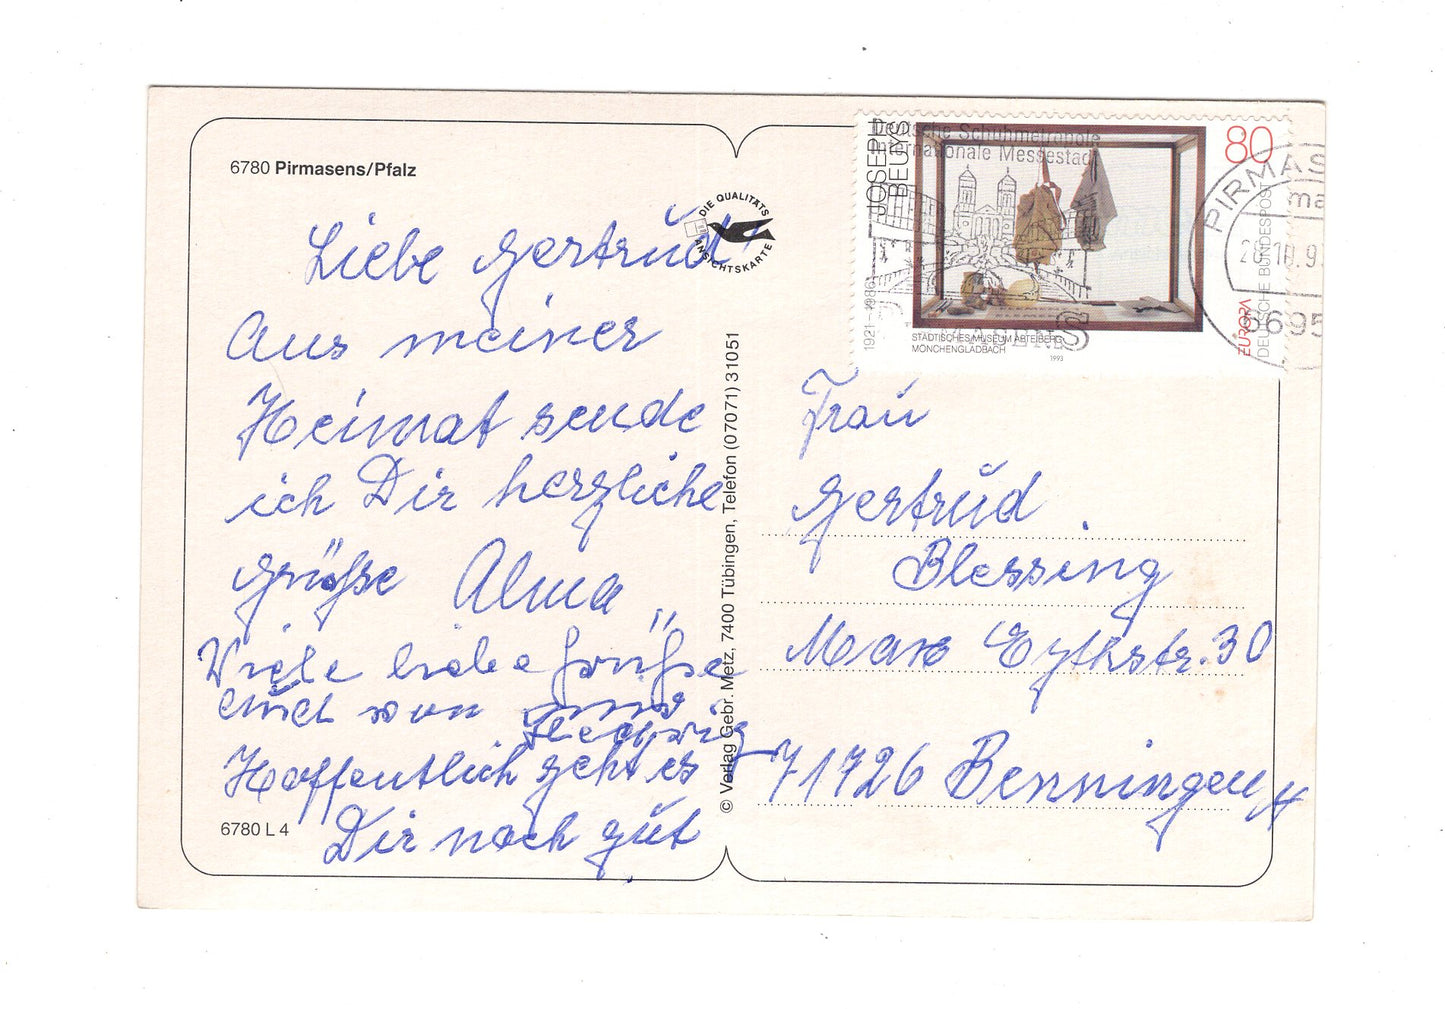 6780 Pirmasens/Pfalz
DIE QUALITÄTS
ANSICHTSKARTE
Liebe Gertrud
Aus meiner
Heimat sende
ich Dir herzliche
Grüße Alma
Viele liebe Grüße
auch von
Hedwig
Hoffentlich geht es
Dir noch gut
6780 L 4
© Verlag Gebr. Metz, 7400 Tübingen, Telefon (07071) 31051
JOSEPH
BEUYS
1921–1986
80
Deutsche Schuhmetropole
Internationale Messestadt
STÄDTISCHES MUSEUM ABTEIBERG
MÖNCHENGLADBACH
1993
EUROPA
DEUTSCHE BUNDESPOST
PIRMAS
ma
6695
Frau
Gertrud
Blessing
Max Eythstr. 30
71726 Benningen